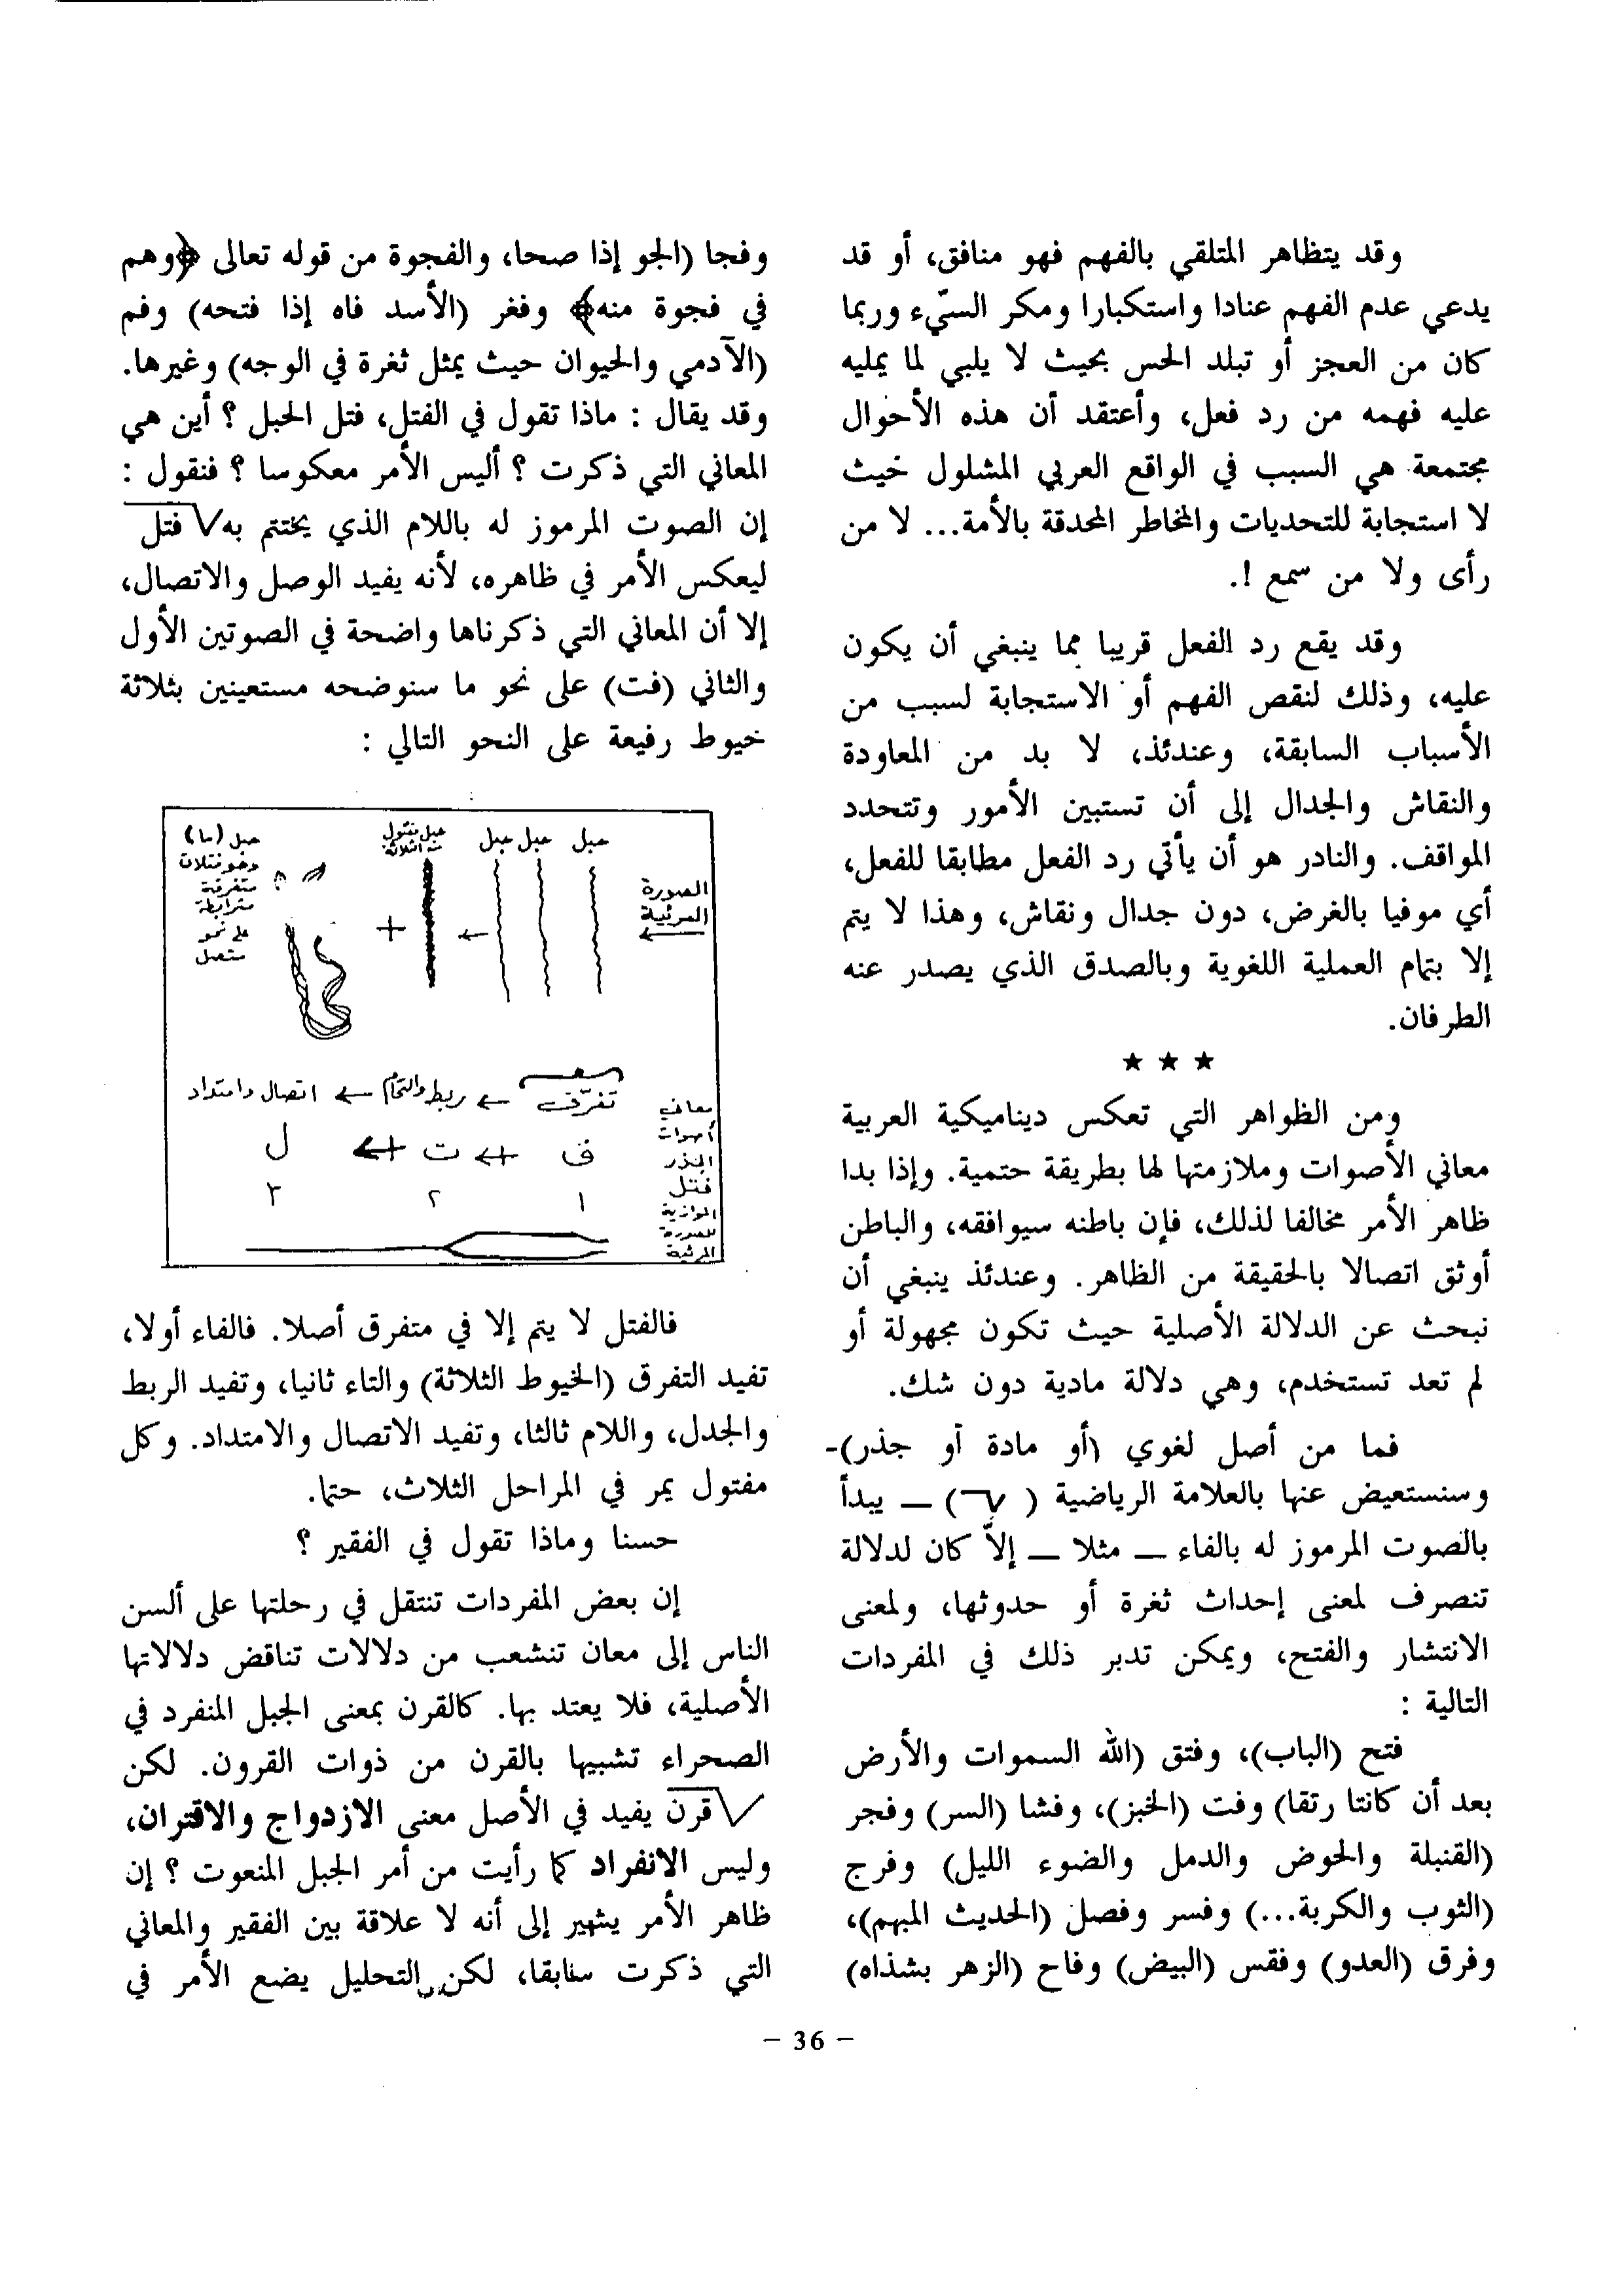 وقد يتظاهر المتلقي بالفهم فهو منافق، أو قد
يدعي عدم الفهم عنادا واستكبارا ومكر السيّء وربما
كان من العجز أو تبلد الحس بحيث لا يلبي لما يمليه
عليه فهمه من رد فعل، وأعتقد أن هذه الأحوال
مجتمعة هي السبب في الواقع العربي المشلول حيث
لا استجابة للتحديات والمخاطر المحدقة بالأمة... لا من
رأى ولا من سمع !.
وقد يقع رد الفعل قريبا مما ينبغي أن يكون
عليه، وذلك لنقص الفهم أو الاستجابة لسبب من
الأسباب السابقة، وعندئذ، لا بد من المعاودة
والنقاش والجدال إلى أن تستبين الأمور وتتحدد
المواقف. والنادر هو أن يأتي رد الفعل مطابقا للفعل،
أي موفيا بالغرض، دون جدال ونقاش، وهذا لا يتم
إلا بتمام العملية اللغوية وبالصدق الذي يصدر عنه
الطرفان.
★ ★ ★
ومن الظواهر التي تعكس ديناميكية العربية
معاني الأصوات وملازمتها لها بطريقة حتمية. وإذا بدا
ظاهر الأمر مخالفا لذلك، فإن باطنه سيوافقه، والباطن
أوثق اتصالا بالحقيقة من الظاهر. وعندئذ ينبغي أن
نبحث عن الدلالة الأصلية حيث تكون مجهولة أو
لم تعد تستخدم، وهي دلالة مادية دون شك.
فما من أصل لغوي (أو مادة أو جذر)-
وسنستعيض عنها بالعلامة الرياضية ( √ ) — يبدأ
بالصوت المرموز له بالفاء — مثلا — إلاّ كان لدلالة
تنصرف لمعنى إحداث ثغرة أو حدوثها، ولمعنى
الانتشار والفتح، ويمكن تدبر ذلك في المفردات
التالية :
فتح (الباب)، وفتق (الله السموات والأرض
بعد أن كانتا رتقا) وفت (الخبز)، وفشا (السر) وفجر
(القنبلة والحوض والدمل والضوء الليل) وفرج
(الثوب والكربة...) وفسر وفصل (الحديث المبهم)،
وفرق (العدو) وفقس (البيض) وفاح (الزهر بشذاه)
وفجا (الجو إذا صحا، والفجوة من قوله تعالى ﴿وهم
في فجوة منه﴾ وفغر (الأسد فاه إذا فتحه) وفم
(الآدمي والحيوان حيث يمثل ثغرة في الوجه) وغيرها.
وقد يقال : ماذا تقول في الفتل، فتل الحبل ؟ أين هي
المعاني التي ذكرت ؟ أليس الأمر معكوسا ؟ فنقول :
إن الصوت المرموز له باللام الذي يختتم به √فتل
ليعكس الأمر في ظاهره، لأنه يفيد الوصل والاتصال،
إلا أن المعاني التي ذكرناها واضحة في الصوتين الأول
والثاني (فت) على نحو ما سنوضحه مستعينين بثلاثة
خيوط رفيعة على النحو التالي :
حبل حبل حبل
حبل مفتول
من الثلاثة
حبل (ما)
متفرقة
مترابطة
على نحو
متصل
الصورة
المرئية
←
← +
تفرّق ← ربط والتحام ← اتصال وامتداد
ف ← ت ← ل
١ ٢ ٣
معاني
أصوات
الجذر
فتل
الموازية
للصورة
المرئية
فالفتل لا يتم إلا في متفرق أصلا. فالفاء أولا،
تفيد التفرق (الخيوط الثلاثة) والتاء ثانيا، وتفيد الربط
والجدل، واللام ثالثا، وتفيد الاتصال والامتداد. وكل
مفتول يمر في المراحل الثلاث، حتما.
حسنا وماذا تقول في الفقير ؟
إن بعض المفردات تنتقل في رحلتها على ألسن
الناس إلى معان تنشعب من دلالات تناقض دلالاتها
الأصلية، فلا يعتد بها. كالقرن بمعنى الجبل المنفرد في
الصحراء تشبيها بالقرن من ذوات القرون. لكن
√قرن يفيد في الأصل معنى الازدواج والاقتران،
وليس الانفراد كما رأيت من أمر الجبل المنعوت ؟ إن
ظاهر الأمر يشير إلى أنه لا علاقة بين الفقير والمعاني
التي ذكرت سابقا، لكن التحليل يضع الأمر في
– 36 –